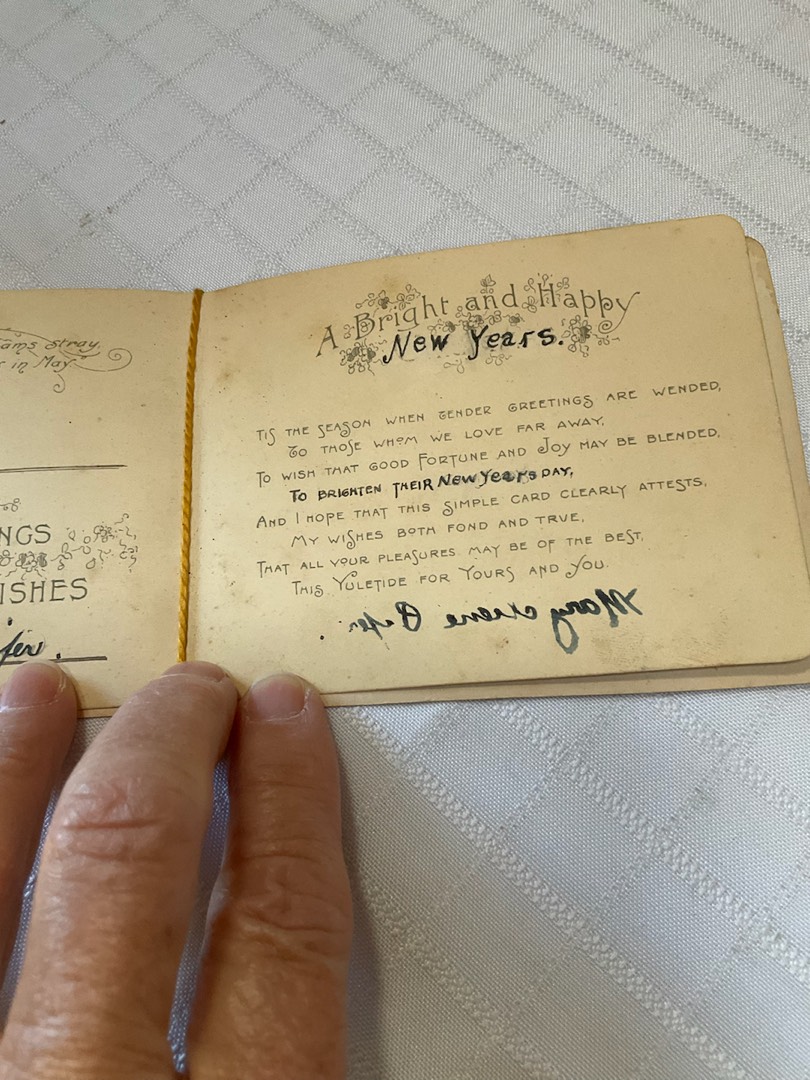 ams stray,
r in May"
NGS
ISHES
fer.
A Bright and Happy
New Years.
TIS THE SEASON WHEN TENDER GREETINGS ARE WENDED,
TO THOSE WHOM WE LOVE FAR AWAY,
TO WISH THAT GOOD FORTUNE AND JOY MAY BE BLENDED,
TO BRIGHTEN THEIR New Years DAY,
AND I HOPE THAT THIS SIMPLE CARD CLEARLY ATTESTS,
MY WISHES BOTH FOND AND TRUE,
THAT ALL YOUR PLEASURES MAY BE OF THE BEST,
THIS YULETIDE FOR YOURS AND YOU.
Mary